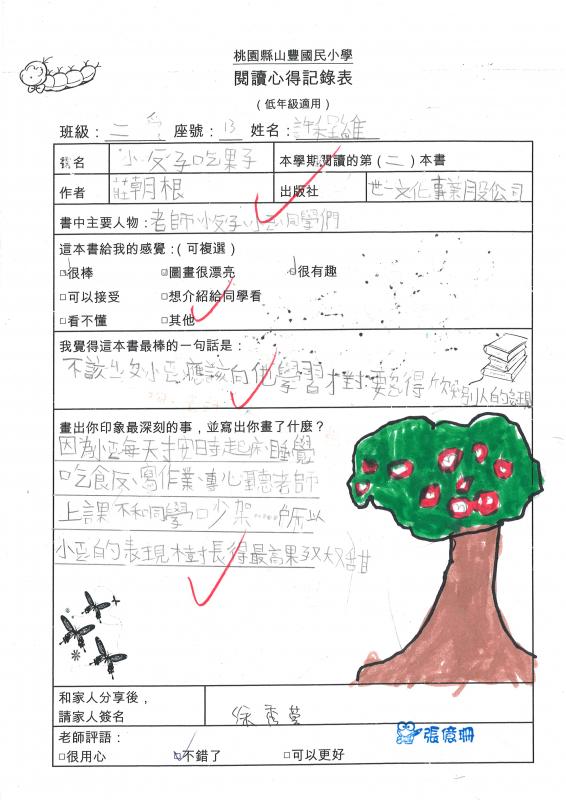 桃園縣山豐國民小學
閱讀心得記錄表
（低年級適用）
班級：二 座號：13 姓名：許
書名 小皮子吃果子 本學期閱讀的第（二）本書
作者 莊朝根 出版社 世一文化事業股公司
書中主要人物：老師、小皮子、小丑同學們
這本書給我的感覺：（可複選）
□很棒 □圖畫很漂亮 □很有趣
□可以接受 □想介紹給同學看
□看不懂 □其他
我覺得這本書最棒的一句話是：
不該 小丑應該向他學習才對要懂得欣 別人的表現
畫出你印象最深刻的事，並寫出你畫了什麼？
因為小丑每天才按時起床、睡覺
吃飯、寫作業、專心聽老師
上課不和同學吵架……所以
小丑的表現樹長得最高果 甜
和家人分享後，
請家人簽名 徐秀
張億珊
老師評語：
□很用心 □不錯了 □可以更好